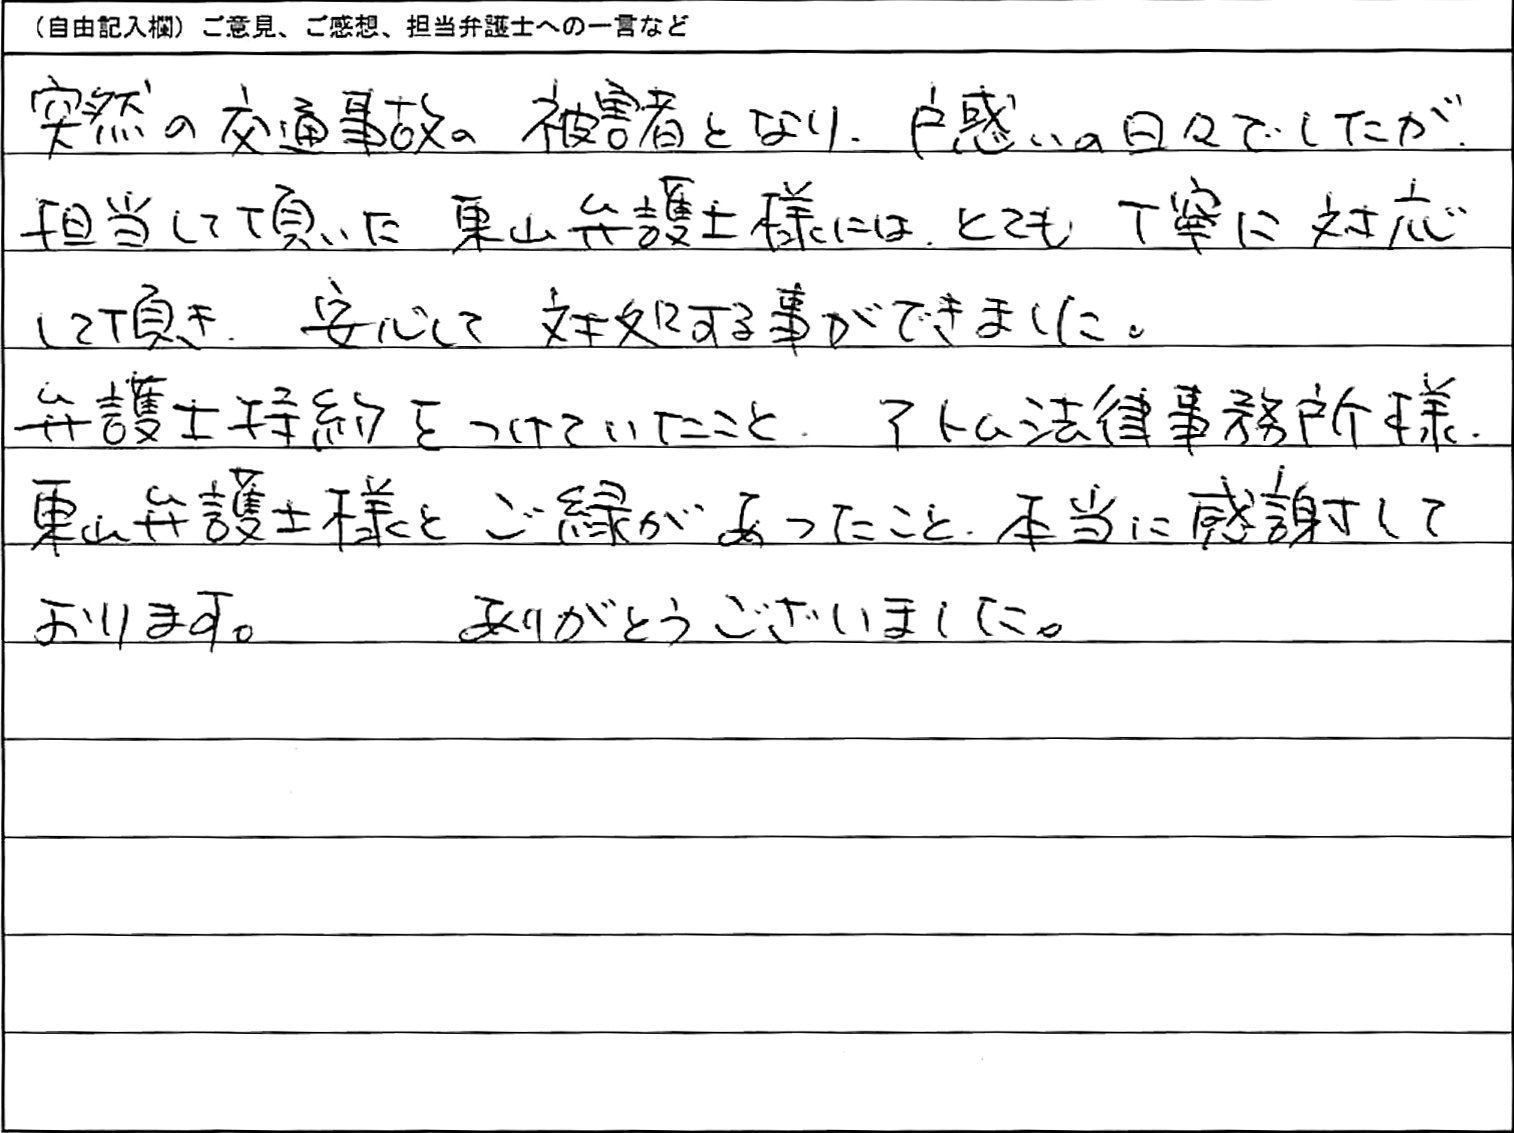 （自由記入欄）ご意見、ご感想、担当弁護士への一言など
突然の交通事故の 被害者となり、戸惑いの日々でしたが、
担当して頂いた 東山弁護士様には、とても 丁寧に 対応
して頂き、 安心して 対処する事ができました。
弁護士特約をつけていたこと、 アトム法律事務所様、
東山弁護士様と ご縁が あったこと、本当に感謝して
おります。 ありがとうございました。